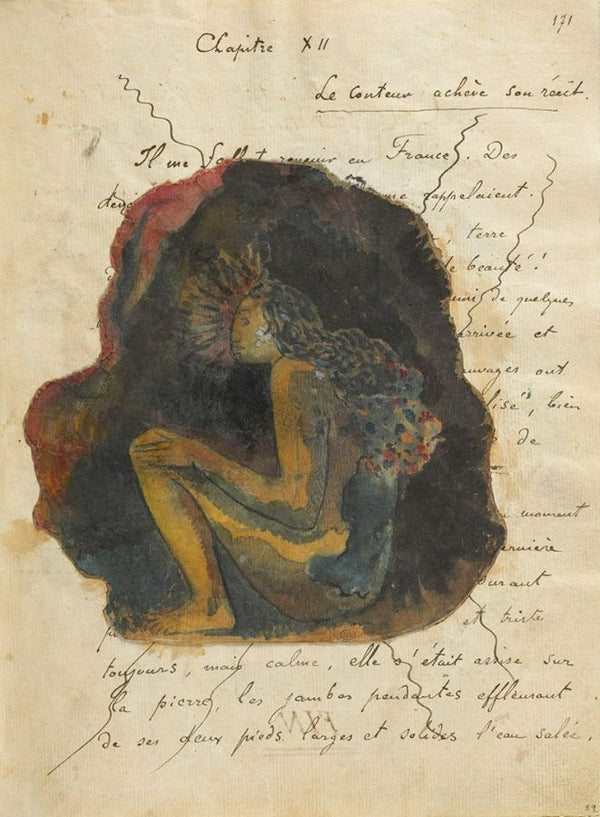 171
Chapitre XII
Le conteur achève son récit.
Il me fallut revenir en France. Des
me rappelaient.
terre
de beauté!
de quelques
arrivée et
auvages ont
lisé", bien
de
moment
dernière
Durant
et triste
toujours, mais calme, elle s'était assise sur
la pierre, les jambes pendantes effleurant
de ses deux pieds larges et solides l'eau salée.